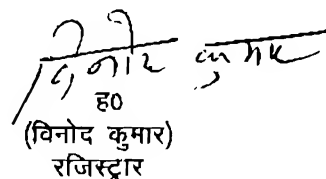 विनोद कुमार
ह0
(विनोद कुमार)
रजिस्ट्रार